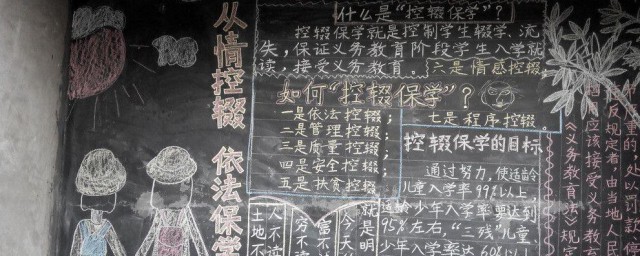 从情控辍 依法保学
什么是“控辍保学”？
控辍保学就是控制学生辍学、流
失，保证义务教育阶段学生入学就
读，接受义务教育。
如何“控辍保学”？
一是依法控辍；
二是管理控辍；
三是质量控辍；
四是安全控辍；
五是扶贫控辍
六是情感控辍
七是程序控辍。
控辍保学的目标
通过努力，使适龄
儿童入学率99%以上，
适龄少年入学率要达到
95%左右，“三残”儿童、
少年入学率达60%以
人不读
土地不
富不
穷不读
就是明
今天
《义务教育法》规定
应该接受义务教
反规定者，由当地人民
质的处以罚款